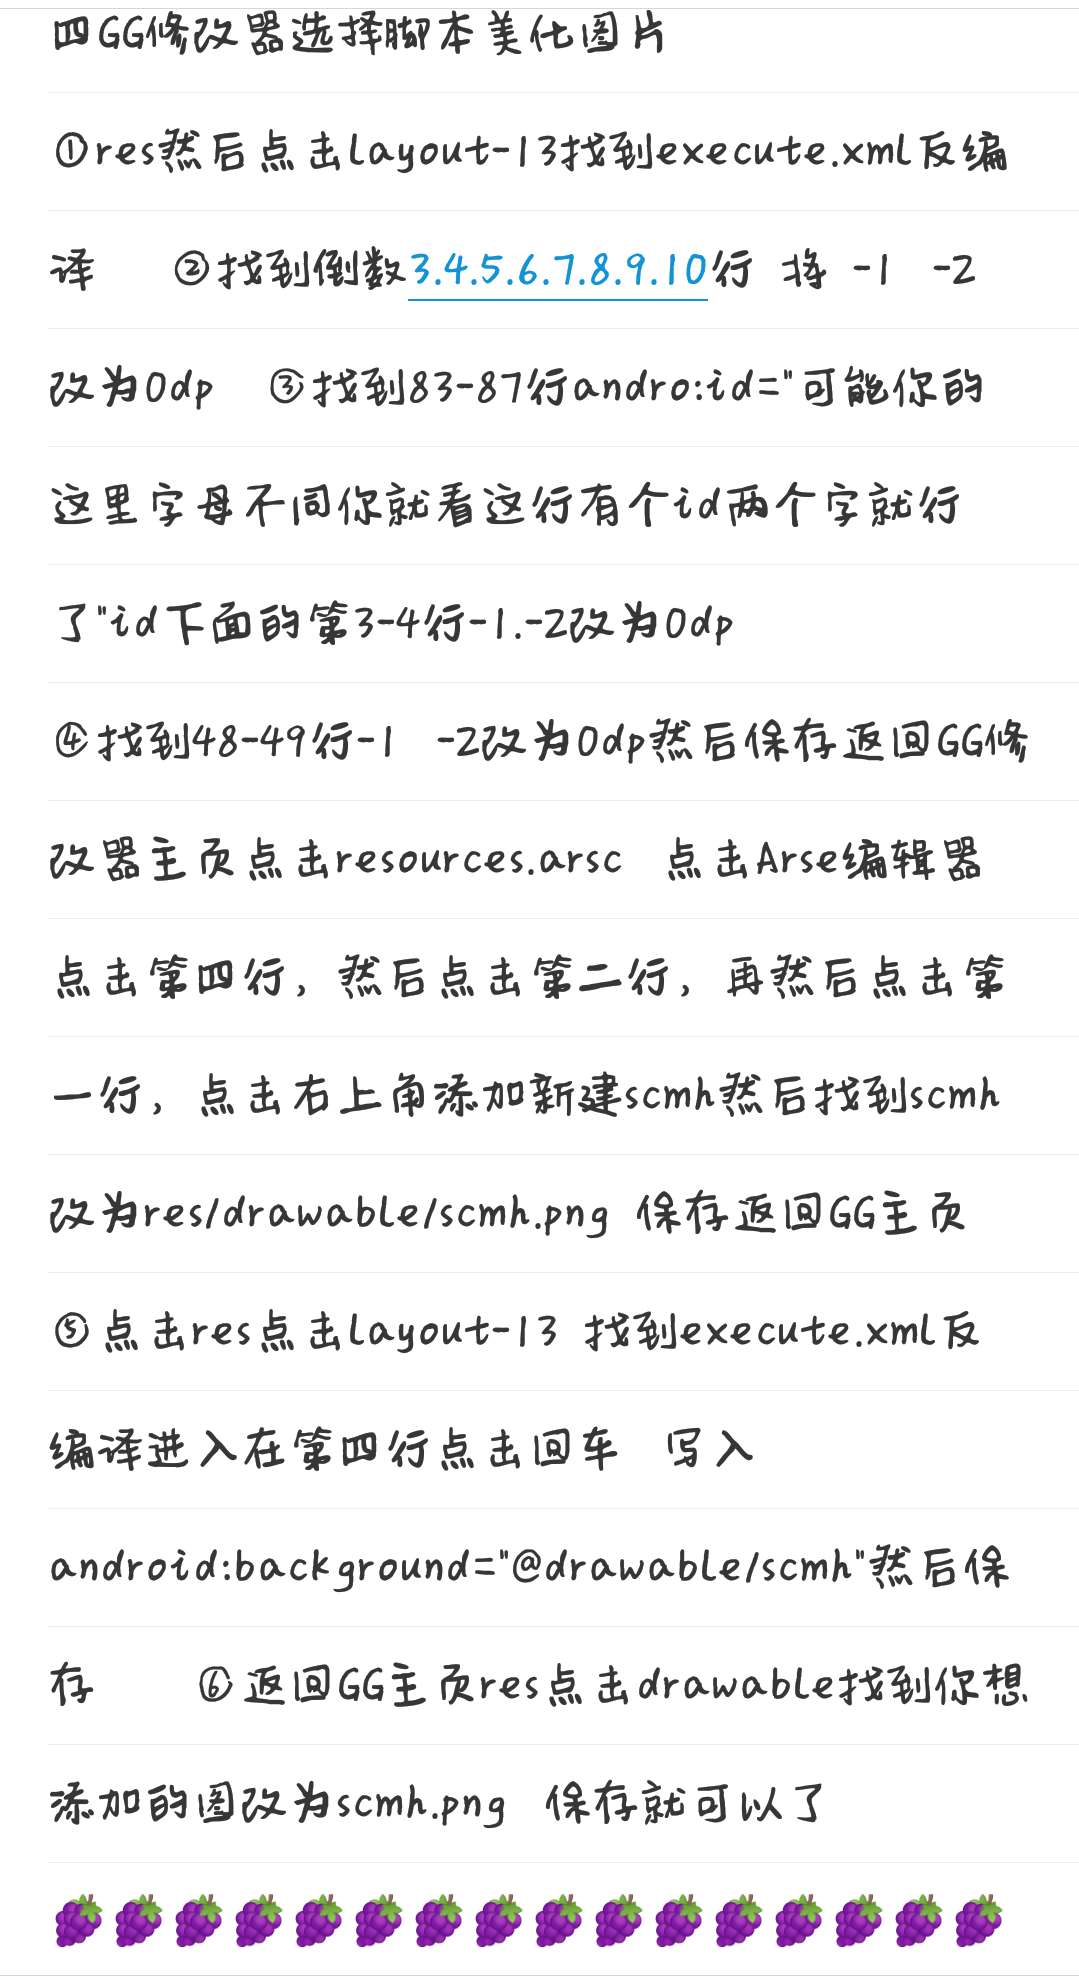 四GG修改器选择脚本美化图片
①res然后点击layout-13找到execute.xml反编
译 ②找到倒数3.4.5.6.7.8.9.10行 将 -1 -2
改为0dp ③找到83-87行andro:id="可能你的
这里字母不同你就看这行有个id两个字就行
了"id下面的第3-4行-1.-2改为0dp
④找到48-49行-1 -2改为0dp然后保存返回GG修
改器主页点击resources.arsc 点击Arse编辑器
点击第四行，然后点击第二行，再然后点击第
一行，点击右上角添加新建scmh然后找到scmh
改为res/drawable/scmh.png 保存返回GG主页
⑤点击res点击layout-13 找到execute.xml反
编译进入在第四行点击回车 写入
android:background="@drawable/scmh"然后保
存 ⑥返回GG主页res点击drawable找到你想
添加的图改为scmh.png 保存就可以了